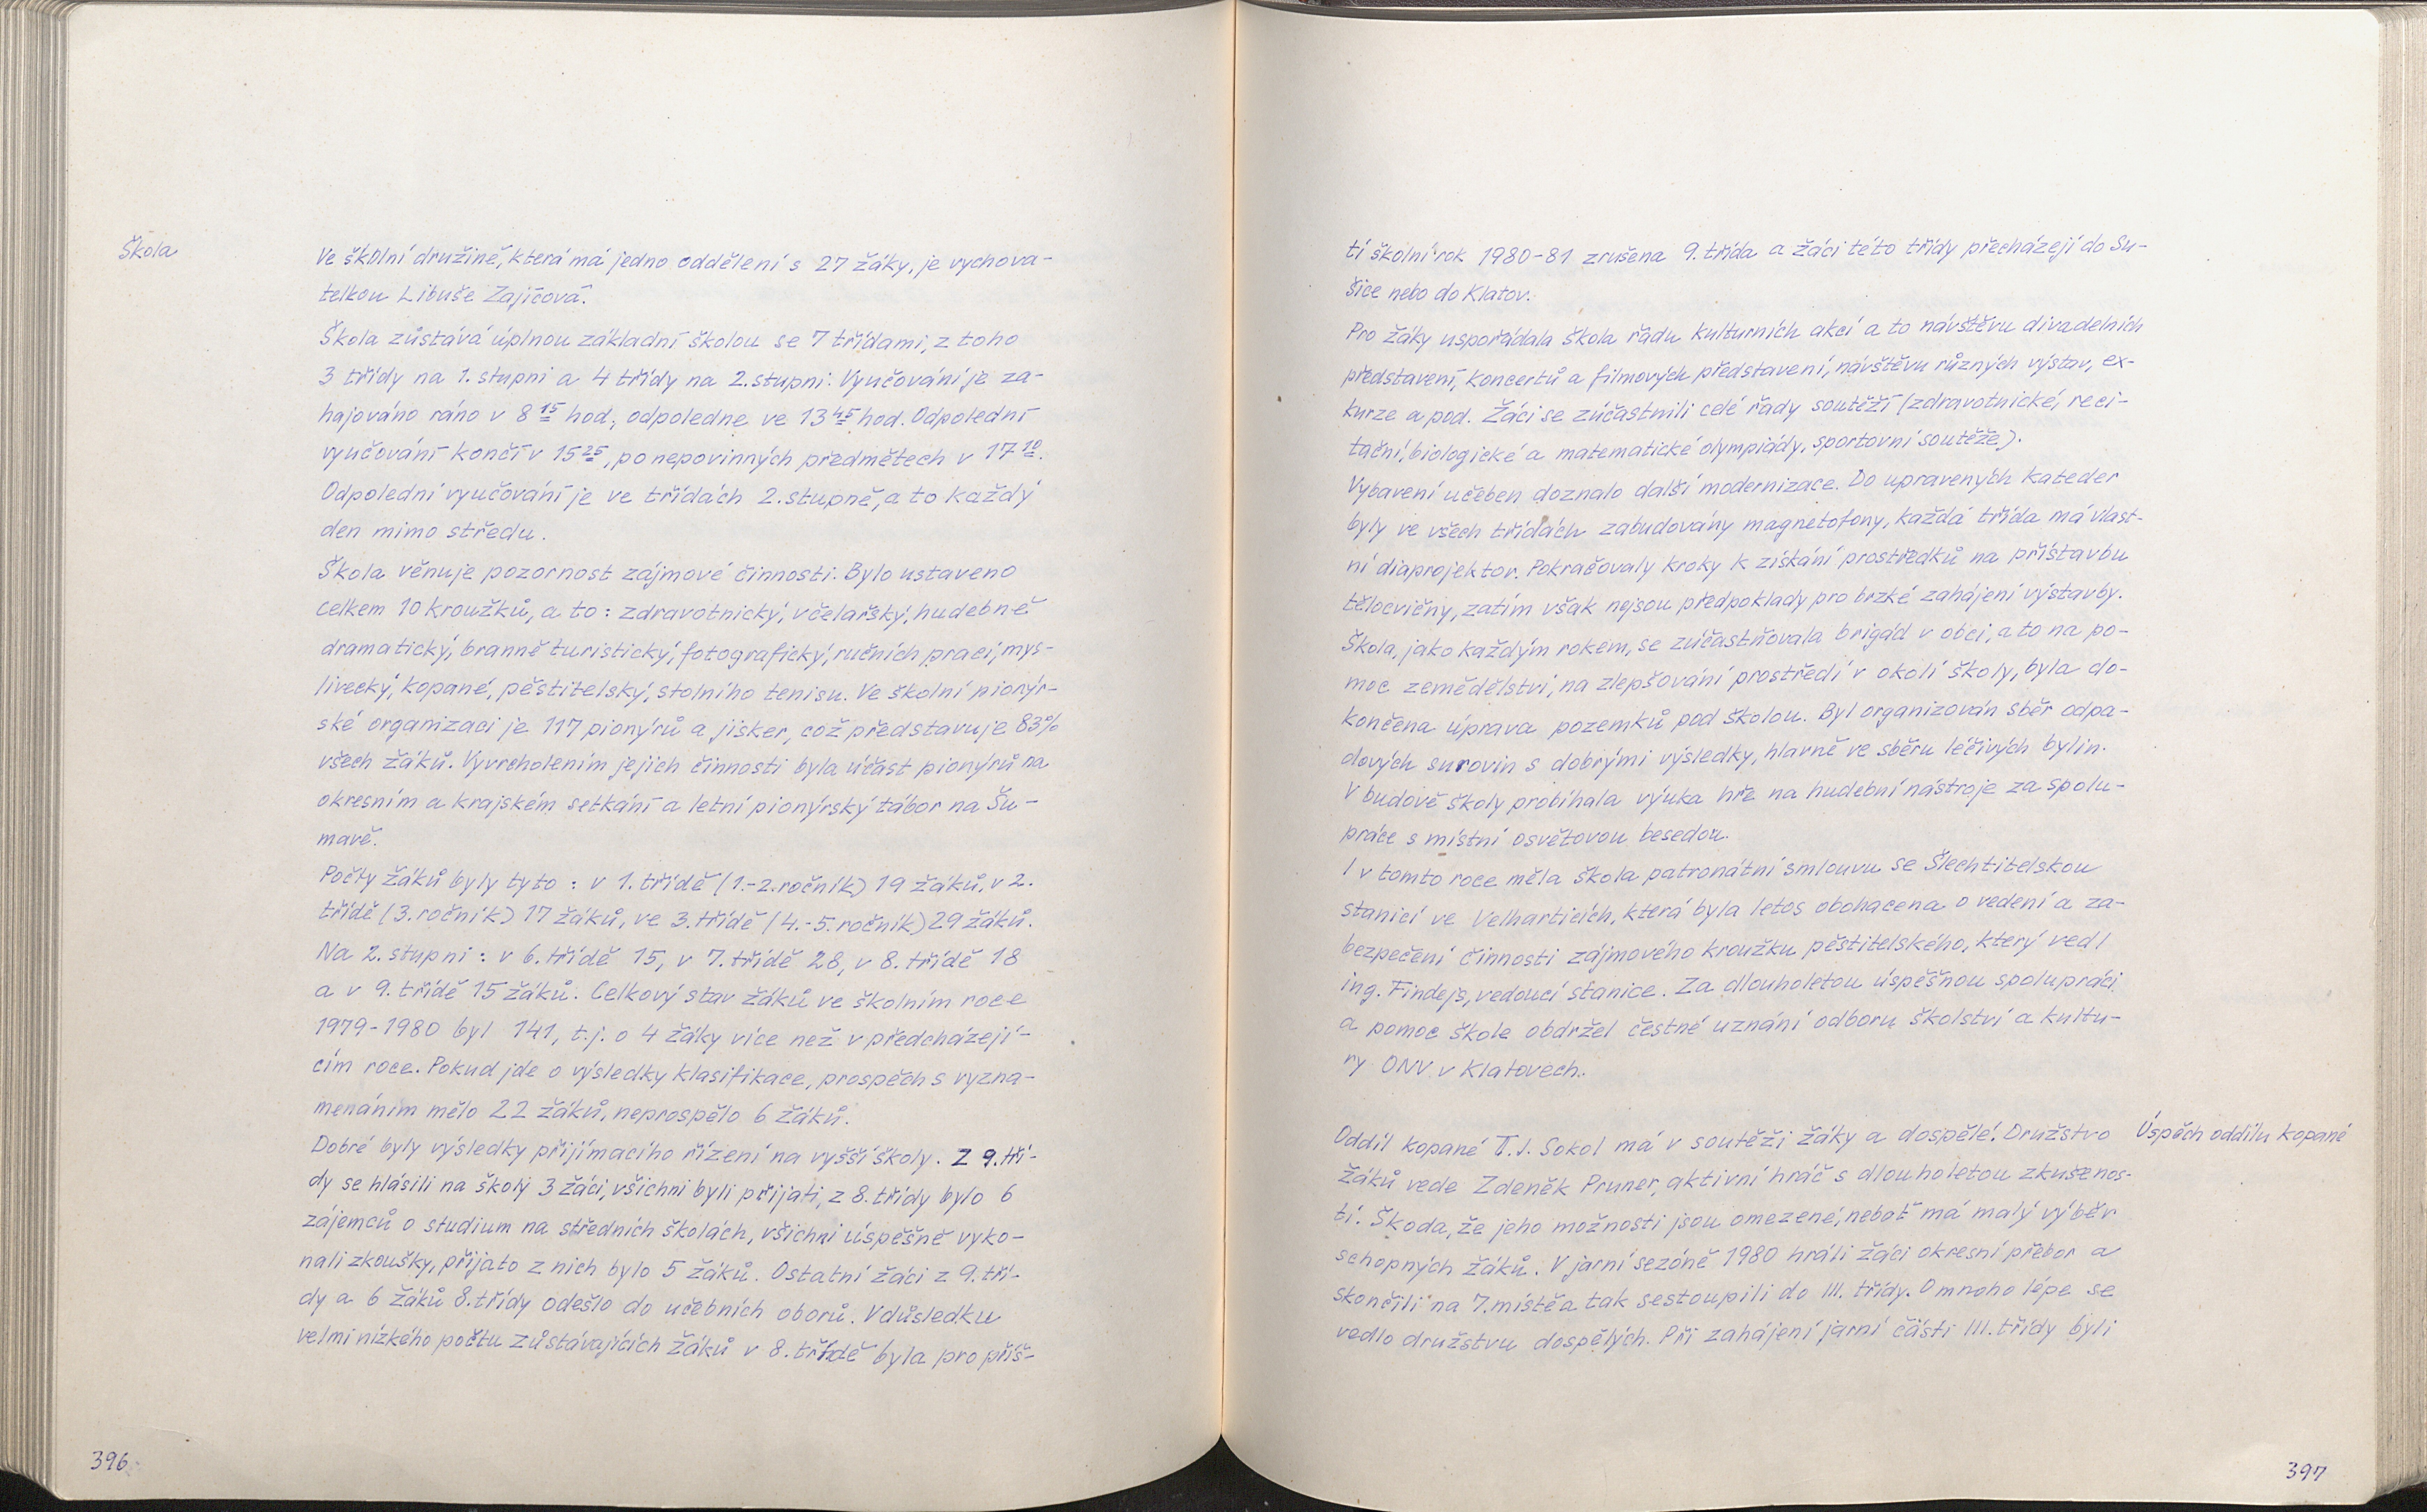 Škola
Ve školní družině, která má jedno oddělení s 27 žáky, je vychova-
telkou Libuše Zajícová.
Škola zůstává úplnou základní školou se 7 třídami, z toho
3 třídy na 1. stupni a 4 třídy na 2. stupni. Vyučování je za-
hajováno ráno v 8 15 hod., odpoledne ve 13 45 hod. Odpolední
vyučování končí v 15 25, po nepovinných předmětech v 17 10.
Odpolední vyučování je ve třídách 2. stupně, a to každý
den mimo středu.
Škola věnuje pozornost zájmové činnosti. Bylo ustaveno
celkem 10 kroužků, a to: zdravotnický, včelařský, hudebně
dramatický, branně turistický, fotografický, ručních prací, mys-
livecký, kopané, pěstitelský, stolního tenisu. Ve školní pionýr-
ské organizaci je 117 pionýrů a jisker, což představuje 83%
všech žáků. Vyvrcholením jejich činnosti byla účast pionýrů na
okresním a krajském setkání a letní pionýrský tábor na Šu-
mavě.
Počty žáků byly tyto: v 1. třídě (1.-2. ročník) 19 žáků, v 2.
třídě (3. ročník) 17 žáků, ve 3. třídě (4.-5. ročník) 29 žáků.
Na 2. stupni: v 6. třídě 15, v 7. třídě 28, v 8. třídě 18
a v 9. třídě 15 žáků. Celkový stav žáků ve školním roce
1979-1980 byl 141, t.j. o 4 žáky více než v předcházejí-
cím roce. Pokud jde o výsledky klasifikace, prospěch s vyzna-
menáním mělo 22 žáků, neprospělo 6 žáků.
Dobré byly výsledky přijímacího řízení na vyšší školy. Z 9. tří-
dy se hlásili na školy 3 žáci, všichni byli přijati, z 8. třídy bylo 6
zájemců o studium na středních školách, všichni úspěšně vyko-
nali zkoušky, přijato z nich bylo 5 žáků. Ostatní žáci z 9. tří-
dy a 6 žáků 8. třídy odešlo do učebních oborů. V důsledku
velmi nízkého počtu zůstávajících žáků v 8. třídě byla pro příš-
396
tí školní rok 1980-81 zrušena 9. třída a žáci této třídy přecházejí do Su-
šice nebo do Klatov.
Pro žáky uspořádala škola řadu kulturních akcí a to návštěvu divadelních
představení, koncertů a filmových představení, návštěvu různých výstav, ex-
kurze a pod. Žáci se zúčastnili celé řady soutěží (zdravotnické, reci-
tační, biologické a matematické olympiády, sportovní soutěže).
Vybavení učeben doznalo další modernizace. Do upravených kateder
byly ve všech třídách zabudovány magnetofony, každá třída má vlast-
ní diaprojektor. Pokračovaly kroky k získání prostředků na přístavbu
tělocvičny, zatím však nejsou předpoklady pro brzké zahájení výstavby.
Škola, jako každým rokem, se zúčastňovala brigád v obci, a to na po-
moc zemědělství, na zlepšování prostředí v okolí školy, byla do-
končena úprava pozemků pod školou. Byl organizován sběr odpa-
dových surovin s dobrými výsledky, hlavně ve sběru léčivých bylin.
V budově školy probíhala výuka hře na hudební nástroje za spolu-
práce s místní osvětovou besedou.
I v tomto roce měla škola patronátní smlouvu se Šlechtitelskou
stanicí ve Velharticích, která byla letos obohacena o vedení a za-
bezpečení činnosti zájmového kroužku pěstitelského, který vedl
ing. Findejs, vedoucí stanice. Za dlouholetou úspěšnou spolupráci
a pomoc škole obdržel čestné uznání odboru školství a kultu-
ry ONV v Klatovech.
Oddíl kopané T.J. Sokol má v soutěži žáky a dospělé. Družstvo
Úspěch oddílu kopané
žáků vede Zdeněk Pruner, aktivní hráč s dlouholetou zkušenos-
tí. Škoda, že jeho možnosti jsou omezené, neboť má malý výběr
schopných žáků. V jarní sezóně 1980 hráli žáci okresní přebor a
skončili na 7. místě a tak sestoupili do III. třídy. O mnoho lépe se
vedlo družstvu dospělých. Při zahájení jarní části III. třídy byli
397